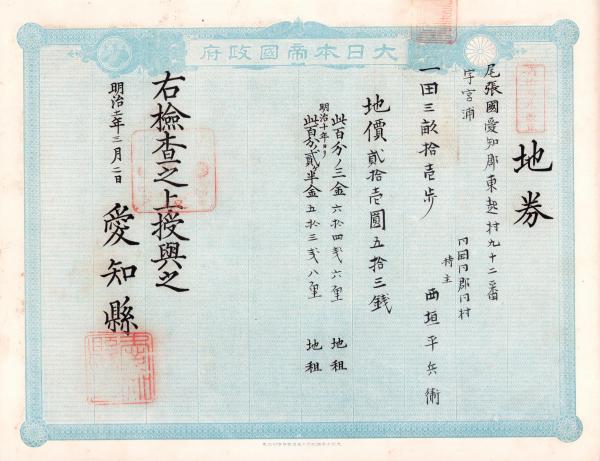 大日本帝國政府
地券
尾張國愛知郡東起村九十二番
字宮浦
同国同郡同村
一田三畝拾壱歩
持主 西垣平兵衛
地價貳拾壱圓五拾三錢
此百分ノ三金六拾四銭六厘 地租
明治十年ヨリ
此百分ノ貳半金五拾三銭八厘 地租
右檢查之上授與之
明治十二年三月二日
愛知縣